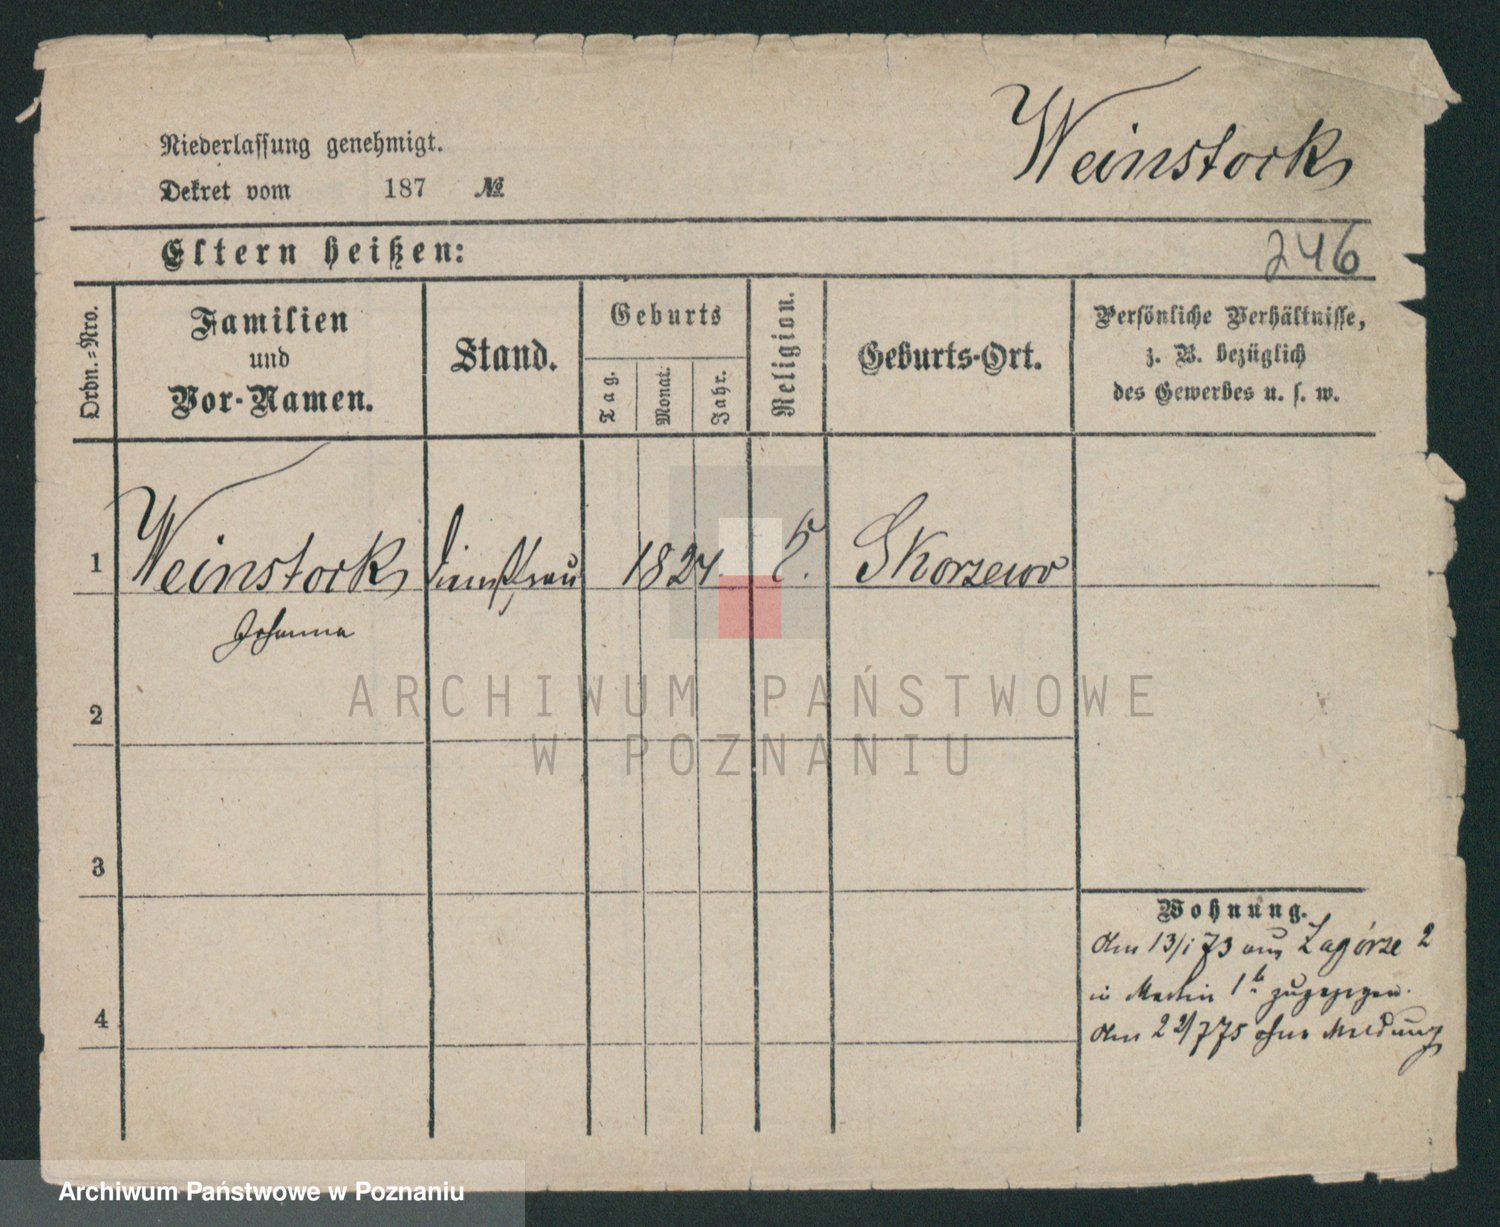 Weinstock
Niederlassung genehmigt.
Dekret vom 187 №
Eltern heißen:
246
Ordn.-Nro.
Familien
und
Vor-Namen.
Stand.
Geburts
Tag.
Monat.
Jahr.
Religion.
Geburts-Ort.
Persönliche Verhältnisse,
z. B. bezüglich
des Gewerbes u. s. w.
1 Weinstock 1824 Skorzewo
Johanna
2
3
4
Wohnung.
Am 13/1 73 aus Zagórze 2
in 1 zugezogen.
Am 22/7 75 ohne Meldung
ARCHIWUM PAŃSTWOWE
W POZNANIU
Archiwum Państwowe w Poznaniu